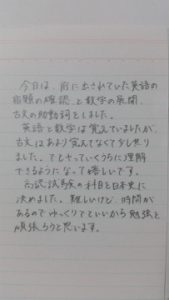 今日は、前に出されていた英語の
宿題の確認、と数学の展開、
古文の助動詞をしました。
英語と数学は覚えていましたが、
古文はあまり覚えてなくて少し焦り
ました。でもやっていくうちに理解
できるようになって嬉しいです。
高認試験の科目を日本史に
決めました。難しいけど、時間が
あるのでゆっくりでといいから勉強を
頑張ろうと思います。